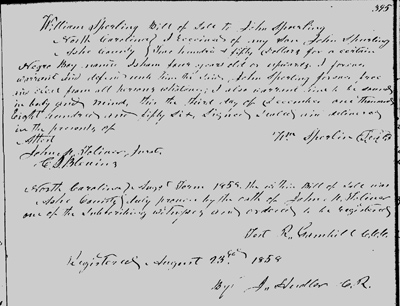 395
William Sperling Bill of Sale to John Sperling
North Carolina } I received of my Son John Sperling
Ashe County } Two hundred & fifty Dollars for a certain
Negro Boy name Isham four years old or upwards I forever
warrant and defend unto him the said John Sperling forever free
and clear from all persons whatever; I also warrant him to be sound
in body and mind, this the third day of December one thousand
Eight hundred and fifty Six, Signed Sealed and delivered
in the presents of
Attest Wm Sperlin (Seal)
John A. Stoliner, Jurat
C. J. Blevins
North Carolina } Augt Term 1858. the within Bill of Sale was
Ashe County } duly proven by the oath of John A. Stoliner
one of the Subscribing witnesses and ordered to be registered
Test R. Gambill C.C.C.
Registered August 23rd 1858
By J. Hendler C.R.